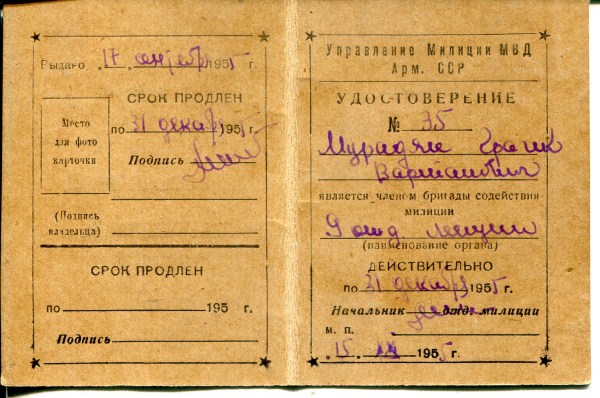 Выдано „17" сентября 1955 г.
СРОК ПРОДЛЕН
по 31 декабря 1955 г.
Подпись
Место
для фото
карточки
(Подпись
владельца)
СРОК ПРОДЛЕН
по 195 г.
Подпись
Управление Милиции МВД
Арм. ССР
УДОСТОВЕРЕНИЕ
№ 35
Мурадян Грант
является членом бригады содействия
милиции
9 отд. милиции
(наименование органа)
ДЕЙСТВИТЕЛЬНО
по 31 декабря 1955 г.
Начальник отд. милиции
м. п.
„15" 1955 г.